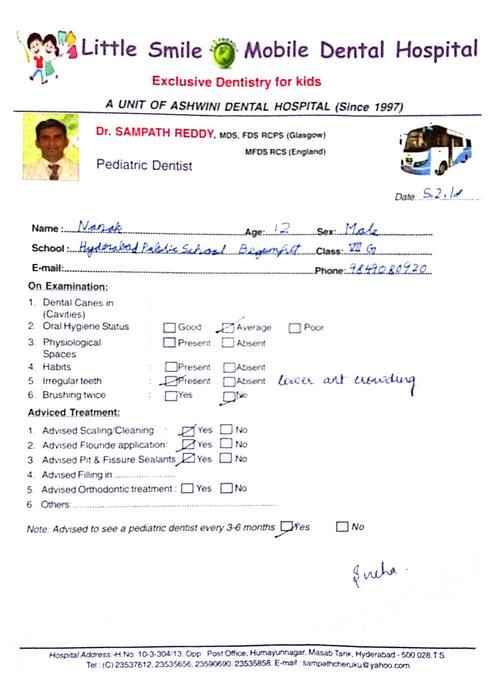 Little Smile Mobile Dental Hospital
Exclusive Dentistry for kids
A UNIT OF ASHWINI DENTAL HOSPITAL (Since 1997)
Dr. SAMPATH REDDY, MDS, FDS RCPS (Glasgow)
MFDS RCS (England)
Pediatric Dentist
Date: 5.2.18
Name: Nanak Age: 12 Sex: Male
School: Hyderabad Public School Begumpet Class: VII G
E-mail: Phone: 9849080920
On Examination:
1. Dental Caries in (Cavities)
2. Oral Hygiene Status Good Average Poor
3. Physiological Spaces Present Absent
4. Habits : Present Absent
5. Irregular teeth : Present Absent lower ant crowding
6. Brushing twice : Yes No
Adviced Treatment:
1. Advised Scaling/Cleaning : Yes No
2. Advised Flouride application: Yes No
3. Advised Pit & Fissure Sealants Yes No
4. Advised Filling in
5. Advised Orthodontic treatment : Yes No
6. Others:
Note: Advised to see a pediatric dentist every 3-6 months Yes No
Hospital Address: H.No. 10-3-304/13, Opp. Post Office, Humayunnagar, Masab Tank, Hyderabad - 500 028.T.S.
Tel : (C) 23537812, 23535656, 23590690, 23535858. E-mail: sampathcheruku@yahoo.com